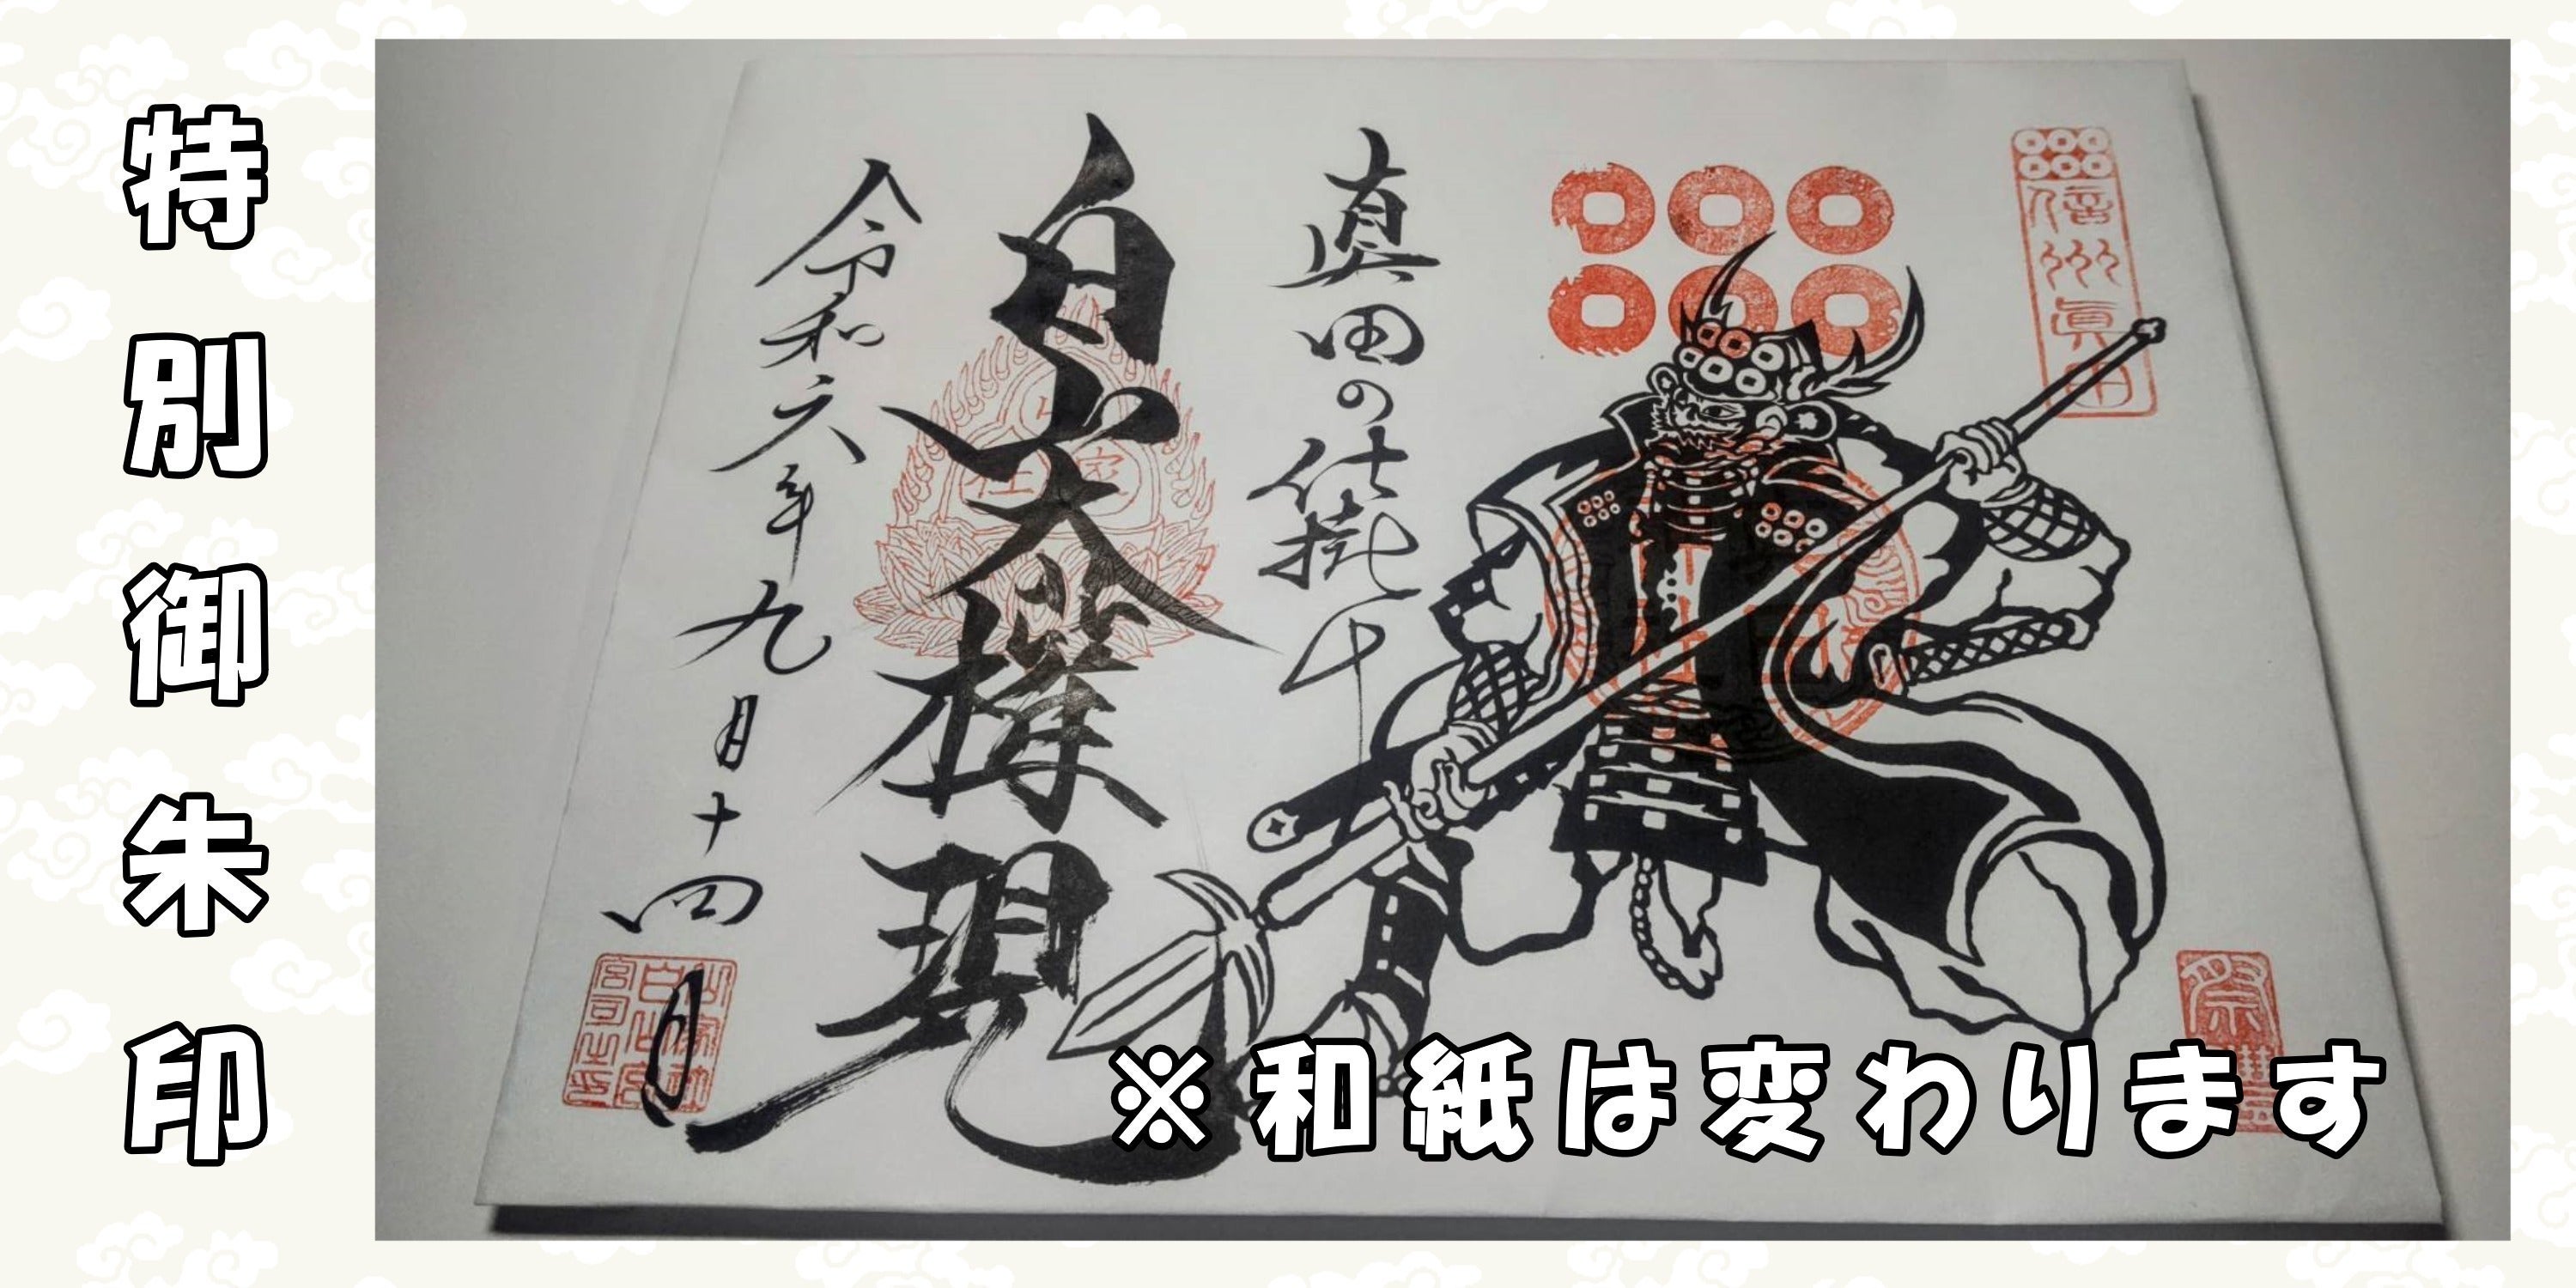 特別御朱印
信州眞田
真田の仕掛け
白山大権現
令和六年九月十四日
※和紙は変わります